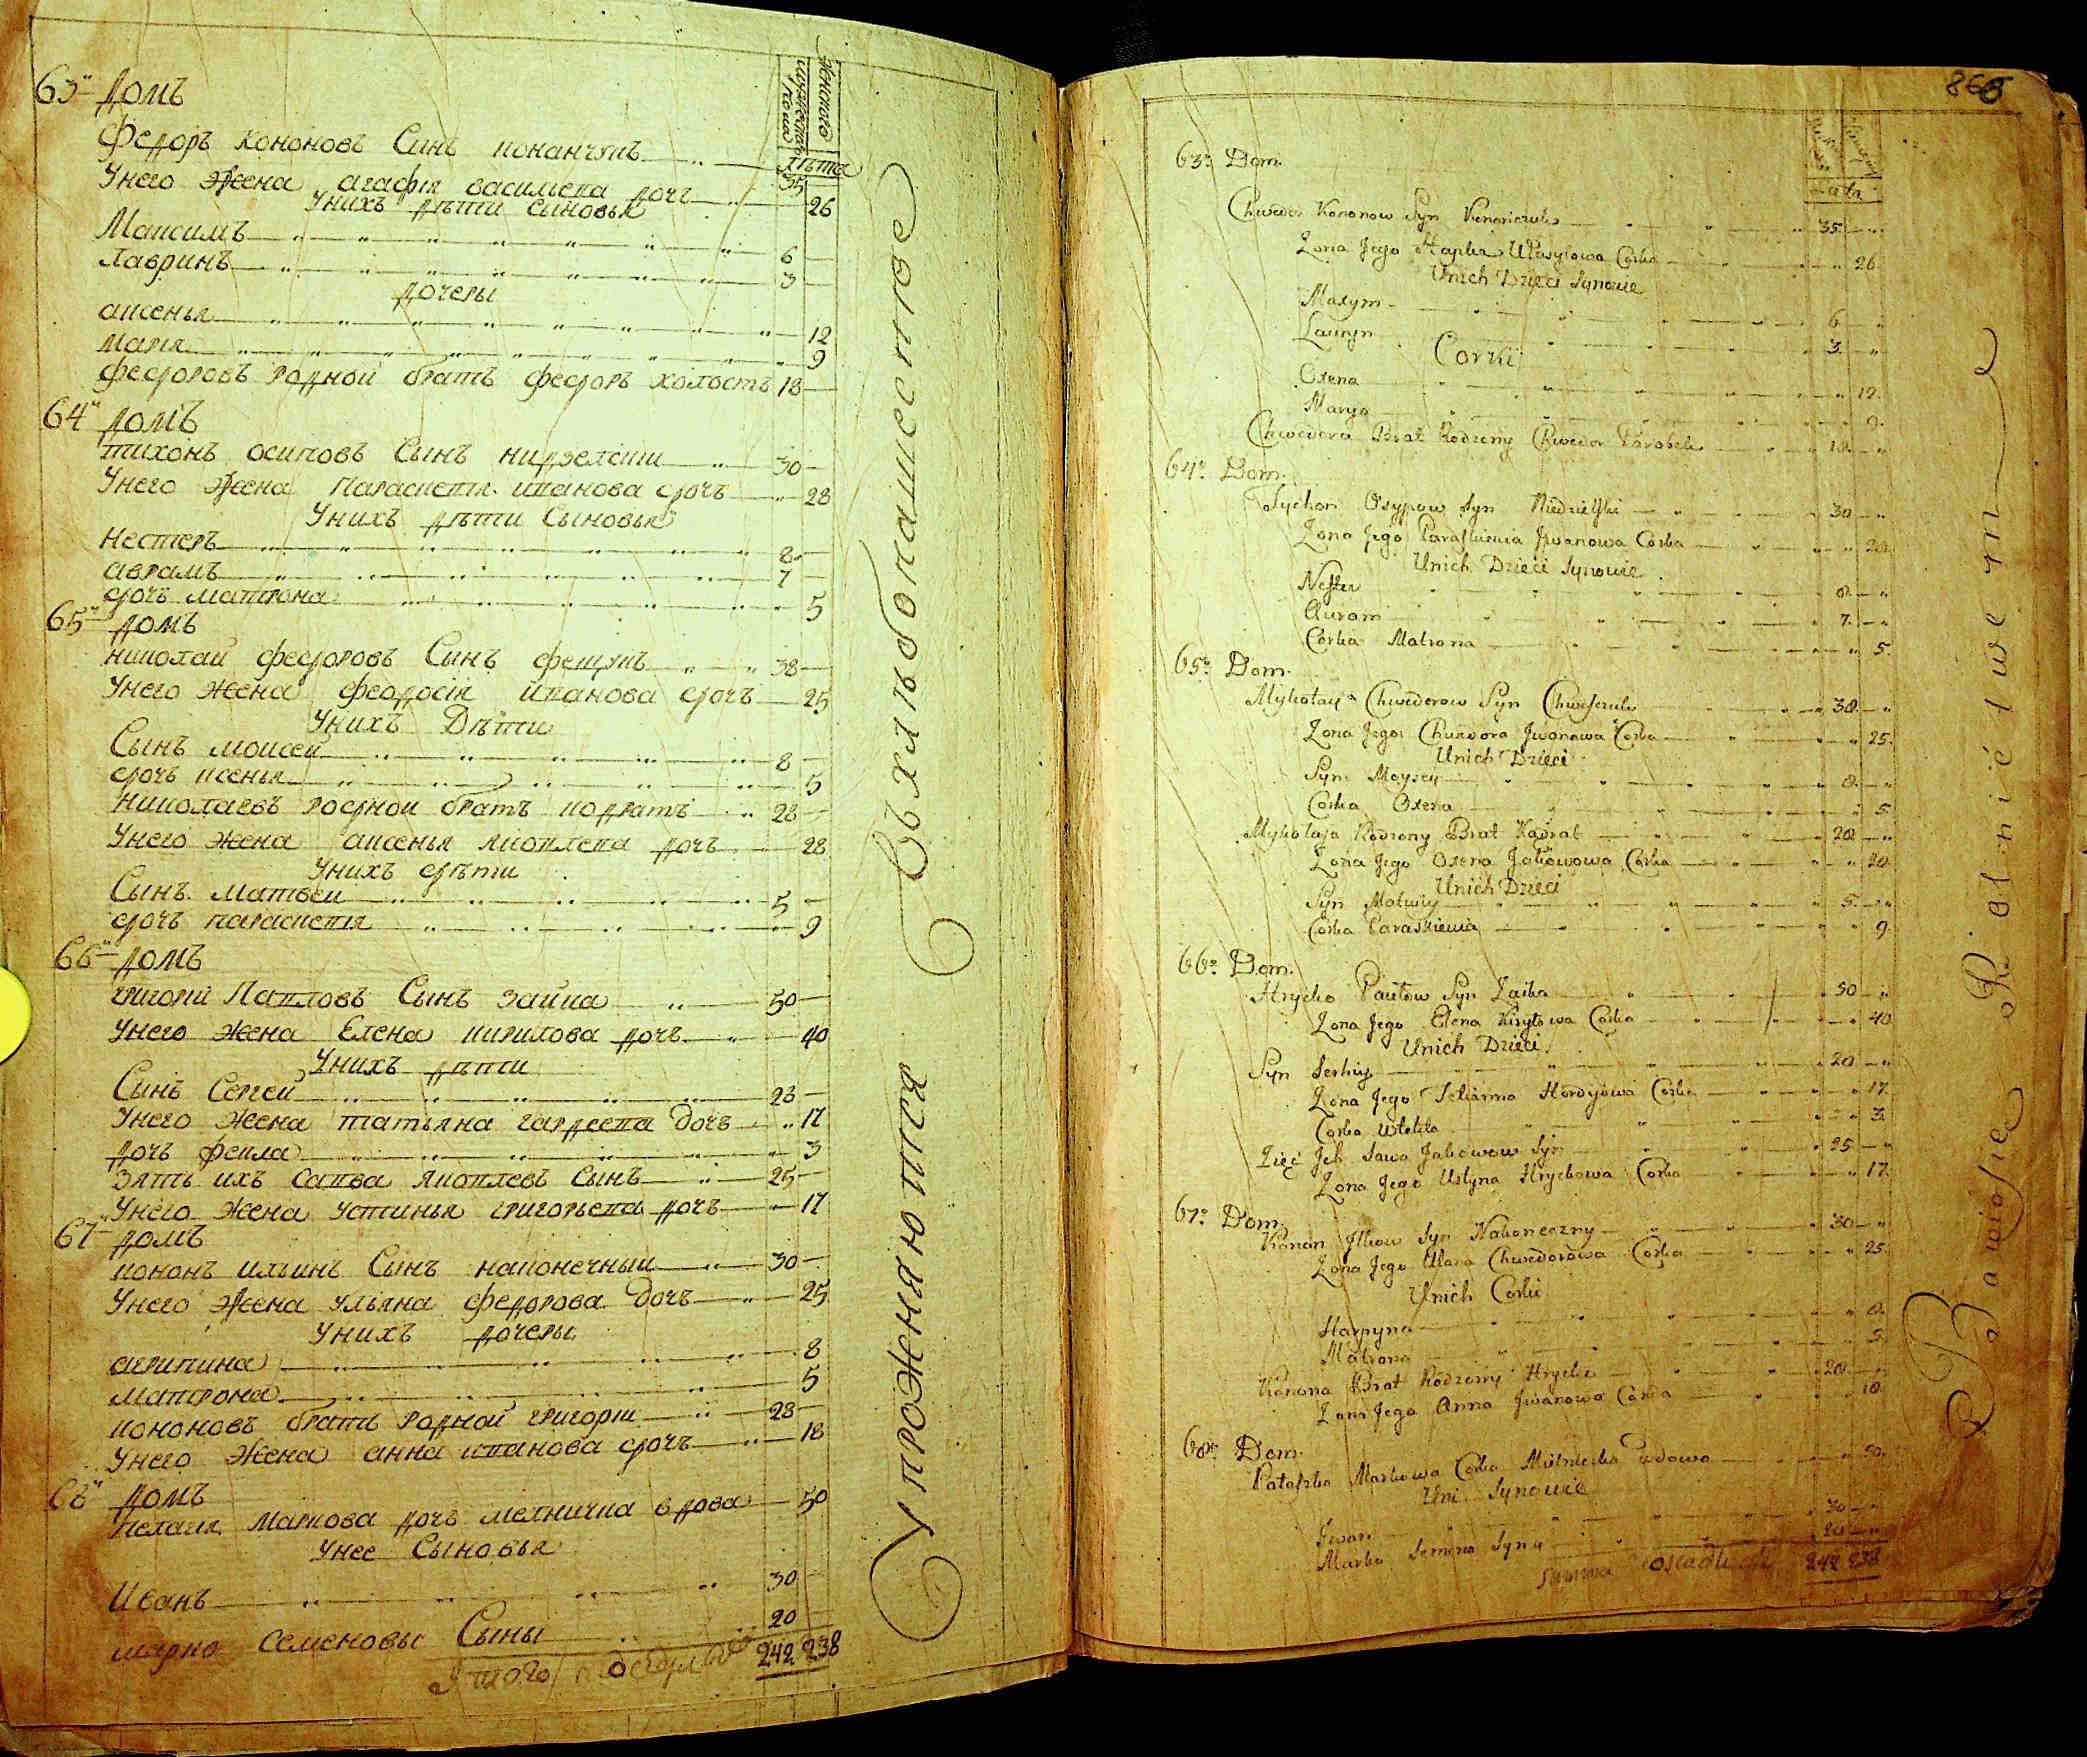 мужеска пола
женского
лѣта
63" домъ
Федоръ кононовъ Синъ конанчукъ 35
Унего жена агафия василиева дочь 26
Унихъ дѣти сыновья
Максимъ 6
лавринъ 3
дочеры
аксенья 12
мария 9
федоровъ родной братъ федоръ холостъ 18
64" домъ
тихонъ осиповъ Сынъ нидзелски 30
Унего жена параскевия иванова дочь 28
Унихъ дѣти Сыновья
Нестеръ 8
аврамъ 7
дочь матрона 5
65" домъ
николай федоровъ Сынъ фещукъ 38
Унего жена феодосия иванова дочь 25
Унихъ Дѣти
Сынъ моисей 8
дочь ксенья 5
николаевъ родной братъ кодратъ 28
Унего жена аксенья яковлева дочь 28
Унихъ дѣти
Сынъ матвей 5
дочь параскевия 9
66" домъ
григорий Павловъ Сынъ заика 50
Унего жена Елена кирилова дочь 40
Унихъ дѣти
Сынъ Сергей 23
Унего жена татьяна гардеева дочь 17
дочь фекла 3
зять ихъ Савва яковлевъ Сынъ 25
Унего жена устинья григорьева дочь 17
67" домъ
кононъ ильинъ Сынъ наконечный 30
Унего жена ульяна федорова дочь 25
Унихъ дочеры
акрипина 8
матрона 5
кононовъ братъ родной григорий 28
Унего жена анна иванова дочь 18
68" домъ
пелагия маркова дочь мелничка вдова 50
Унее Сыновья
Иванъ 30
марко Семеновы Сыны 20
Итого 242 238
Упроженяются Вхлѣбопашестве
866
Lata
63o Dom.
Chwedor Kononow Syn Kononczuk 35
Zona Jego Hapka Wasylowa Corka 26
Unich Dzieci Synowie
Maxym 6
Lauryn 3
Corki
Oxena 12
Marya 9
Chwedora Brat Rodzony Chwedor 18
64o Dom.
Tychon Osypow Syn Niedzielski 30
Zona Jego Paraskiewia Jwanowa Corka 28
Unich Dzieci Synowie
Nester 8
Auram 7
Corka Matrona 5
65o Dom.
Mykołay Chwedorow Syn Chweszczuk 38
Zona Jego Chwedora Jwanowa Corka 25
Unich Dzieci
Syn Moysey 8
Corka Oxena 5
Mykołaja Rodzony Brat Kadrat 28
Zona Jego Oxena Jakowowa Corka 28
Unich Dzieci
Syn Matwiy 5
Corka Paraskiewia 9
66o Dom.
Hrycko Pawłow Syn Zaika 50
Zona Jego Elena Kiryłowa Corka 40
Unich Dzieci
Syn Serhiy 20
Zona Jego Tetianna Hordyiowa Corka 17
Corka 3
Zięć Jch Sawa Jakowow Syn 25
Zona Jego Ustyna Hryckowa Corka 17
67o Dom
Konon Jlkow Syn Nakoneczny 30
Zona Jego Ulana Chwedorowa Corka 25
Unich Corki
Harpyna 8
Matrona 5
Konona Brat Rodzony Hrycko 28
Zona Jego Anna Jwanowa Corka 18
68o Dom
Pałaszka Markowa Corka Mielniczka wdowa 50
Uni Synowie
Jwan 30
Marko Semena Syny 20
Summa 242 238
Bawiąsię Rolnictwem